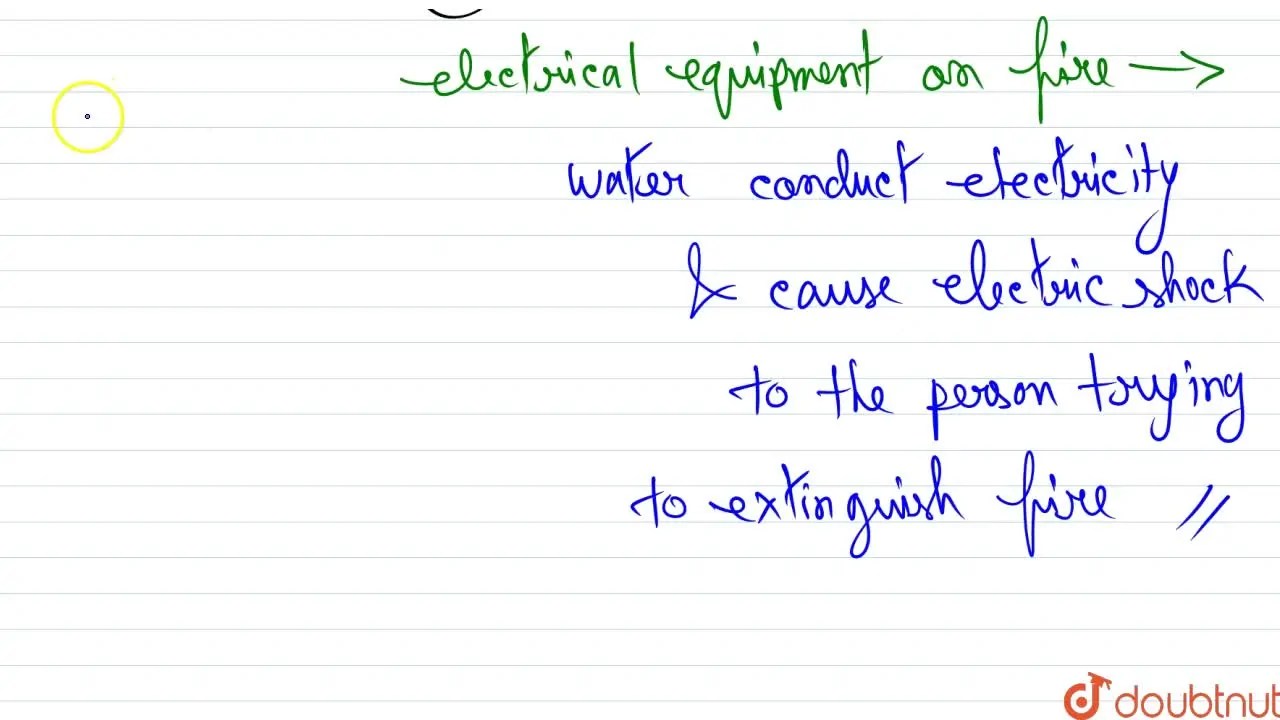 electrical equipment on fire →
water conduct electricity
& cause electric shock
to the person trying
to extinguish fire //
doubtnut